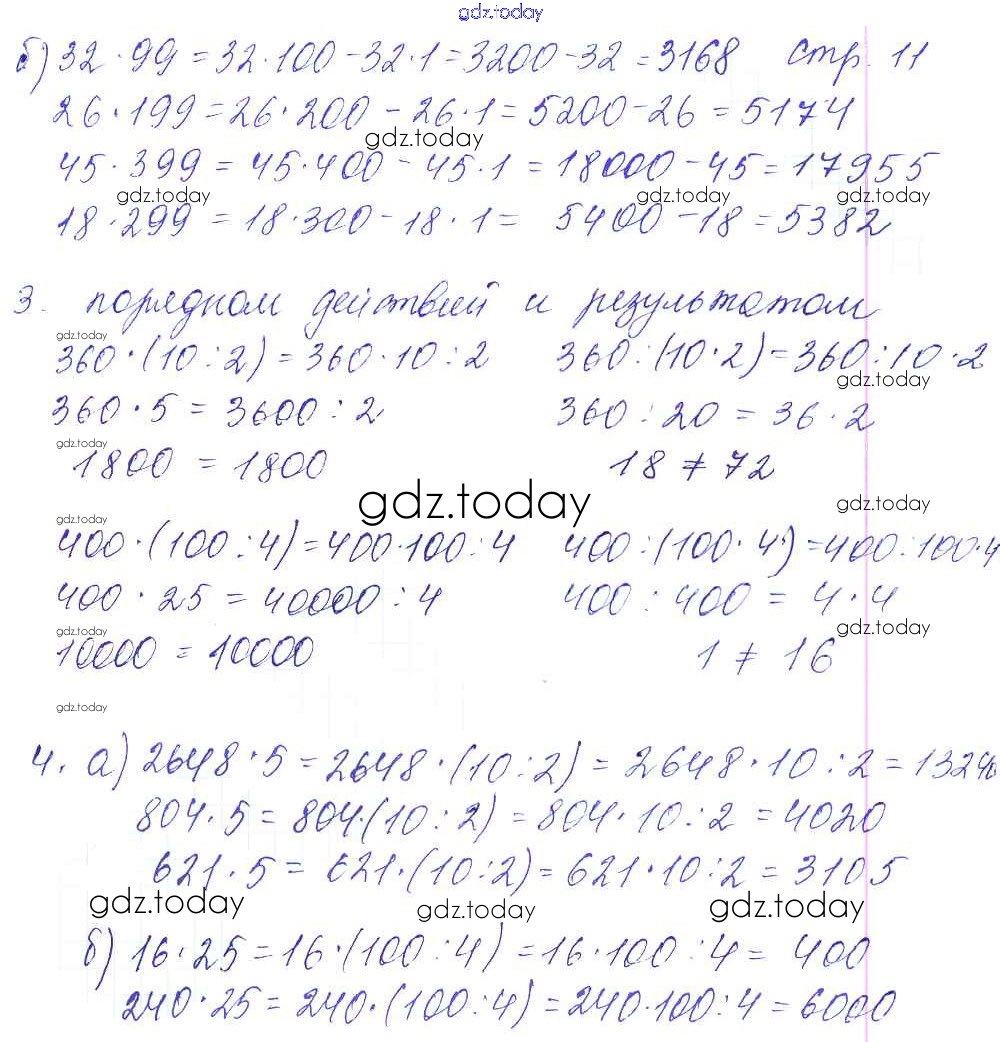 gdz.today
б) 32 · 99 = 32 · 100 - 32 · 1 = 3200 - 32 = 3168 стр. 11
26 · 199 = 26 · 200 - 26 · 1 = 5200 - 26 = 5174
gdz.today
45 · 399 = 45 · 400 - 45 · 1 = 18000 - 45 = 17955
gdz.today gdz.today gdz.today
18 · 299 = 18 · 300 - 18 · 1 = 5400 - 18 = 5382
3. порядком действий и результатом
gdz.today
360 · (10 : 2) = 360 · 10 : 2 360 : (10 · 2) = 360 : 10 · 2
gdz.today
360 · 5 = 3600 : 2 360 : 20 = 36 · 2
gdz.today
1800 = 1800 18 ≠ 72
gdz.today gdz.today
gdz.today
400 · (100 : 4) = 400 · 100 : 4 400 : (100 · 4) = 400 : 100 · 4
400 · 25 = 40000 : 4 400 : 400 = 4 · 4
gdz.today gdz.today
10000 = 10000 1 ≠ 16
gdz.today
4. а) 2648 · 5 = 2648 · (10 : 2) = 2648 · 10 : 2 = 13240
804 · 5 = 804 · (10 : 2) = 804 · 10 : 2 = 4020
621 · 5 = 621 · (10 : 2) = 621 · 10 : 2 = 3105
gdz.today gdz.today gdz.today
б) 16 · 25 = 16 · (100 : 4) = 16 · 100 : 4 = 400
240 · 25 = 240 · (100 : 4) = 240 · 100 : 4 = 6000